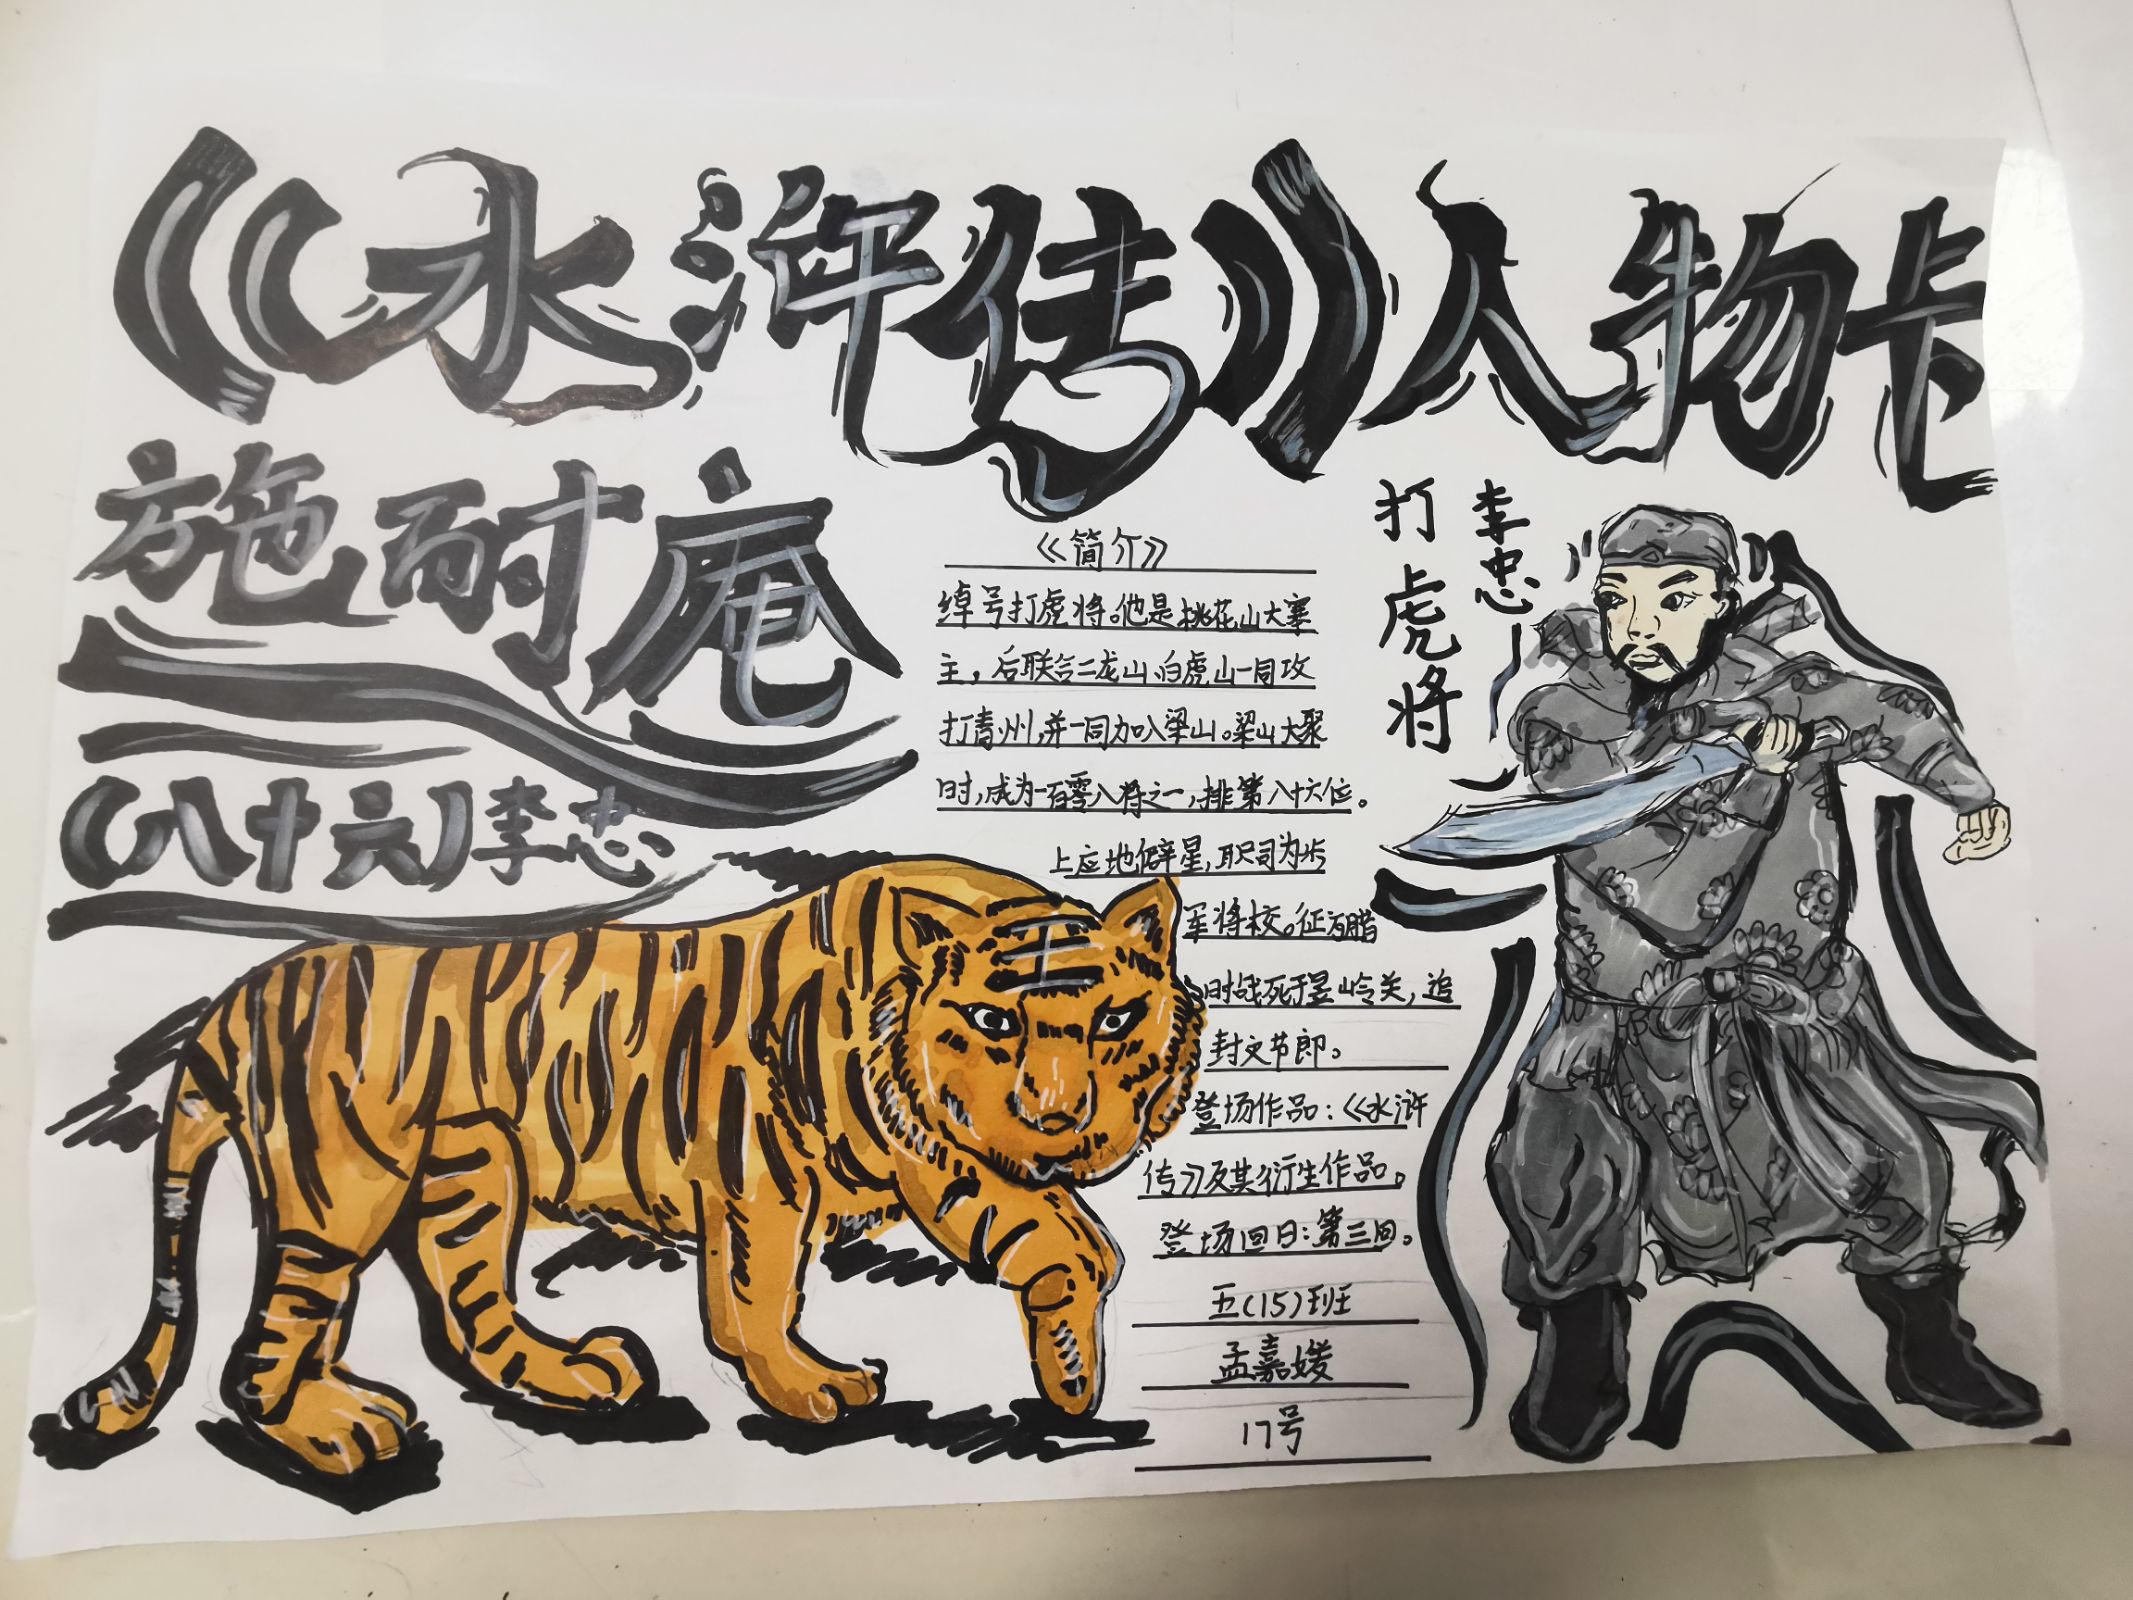 《水浒传》人物卡
施耐庵
(八十六)李忠
打虎将
李忠
《简介》
绰号打虎将。他是桃花山大寨
主，后联合二龙山、白虎山一同攻
打青州，并一同加入梁山。梁山大聚
时，成为一百零八将之一，排第八十六位。
上应地僻星，职司为步
军将校。征方腊
时战死于昱岭关，追
封义节郎。
登场作品：《水浒
传》及其衍生作品。
登场回目：第三回。
五(15)班
孟嘉媛
17号
王